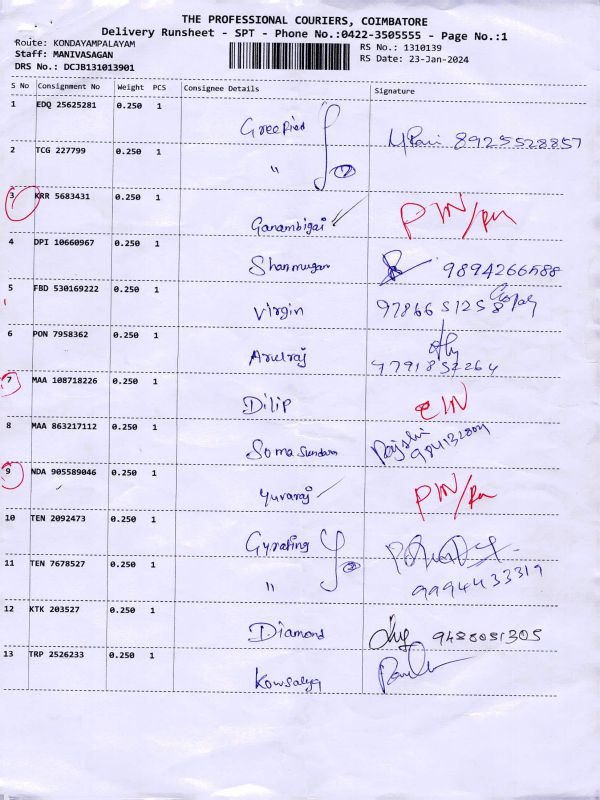 THE PROFESSIONAL COURIERS, COIMBATORE
Delivery Runsheet - SPT - Phone No.:0422-3505555 - Page No.:1
Route: KONDAYAMPALAYAM
RS No.: 1310139
Staff: MANIVASAGAN
RS Date: 23-Jan-2024
DRS No.: DCJB131013901
S No Consignment No Weight PCS Consignee Details Signature
1 EDQ 25625281 0.250 1
8925528857
2 TCG 227799 0.250 1
" 2
3 KRR 5683431 0.250 1
Ganambigai PIN/
4 DPI 10660967 0.250 1
Shanmugan 9894266588
5 FBD 530169222 0.250 1
Virgin 9786651258
6 PON 7958362 0.250 1
Arulraj
7791852264
7 MAA 108718226 0.250 1
Dilip
8 MAA 863217112 0.250 1
Soma Sundam
9 NDA 905589046 0.250 1
Yuvaraj PIN/
10 TEN 2092473 0.250 1
11 TEN 7678527 0.250 1
" 2 9994433319
12 KTK 203527 0.250 1
Diamond 9488081305
13 TRP 2526233 0.250 1
Kowsalya